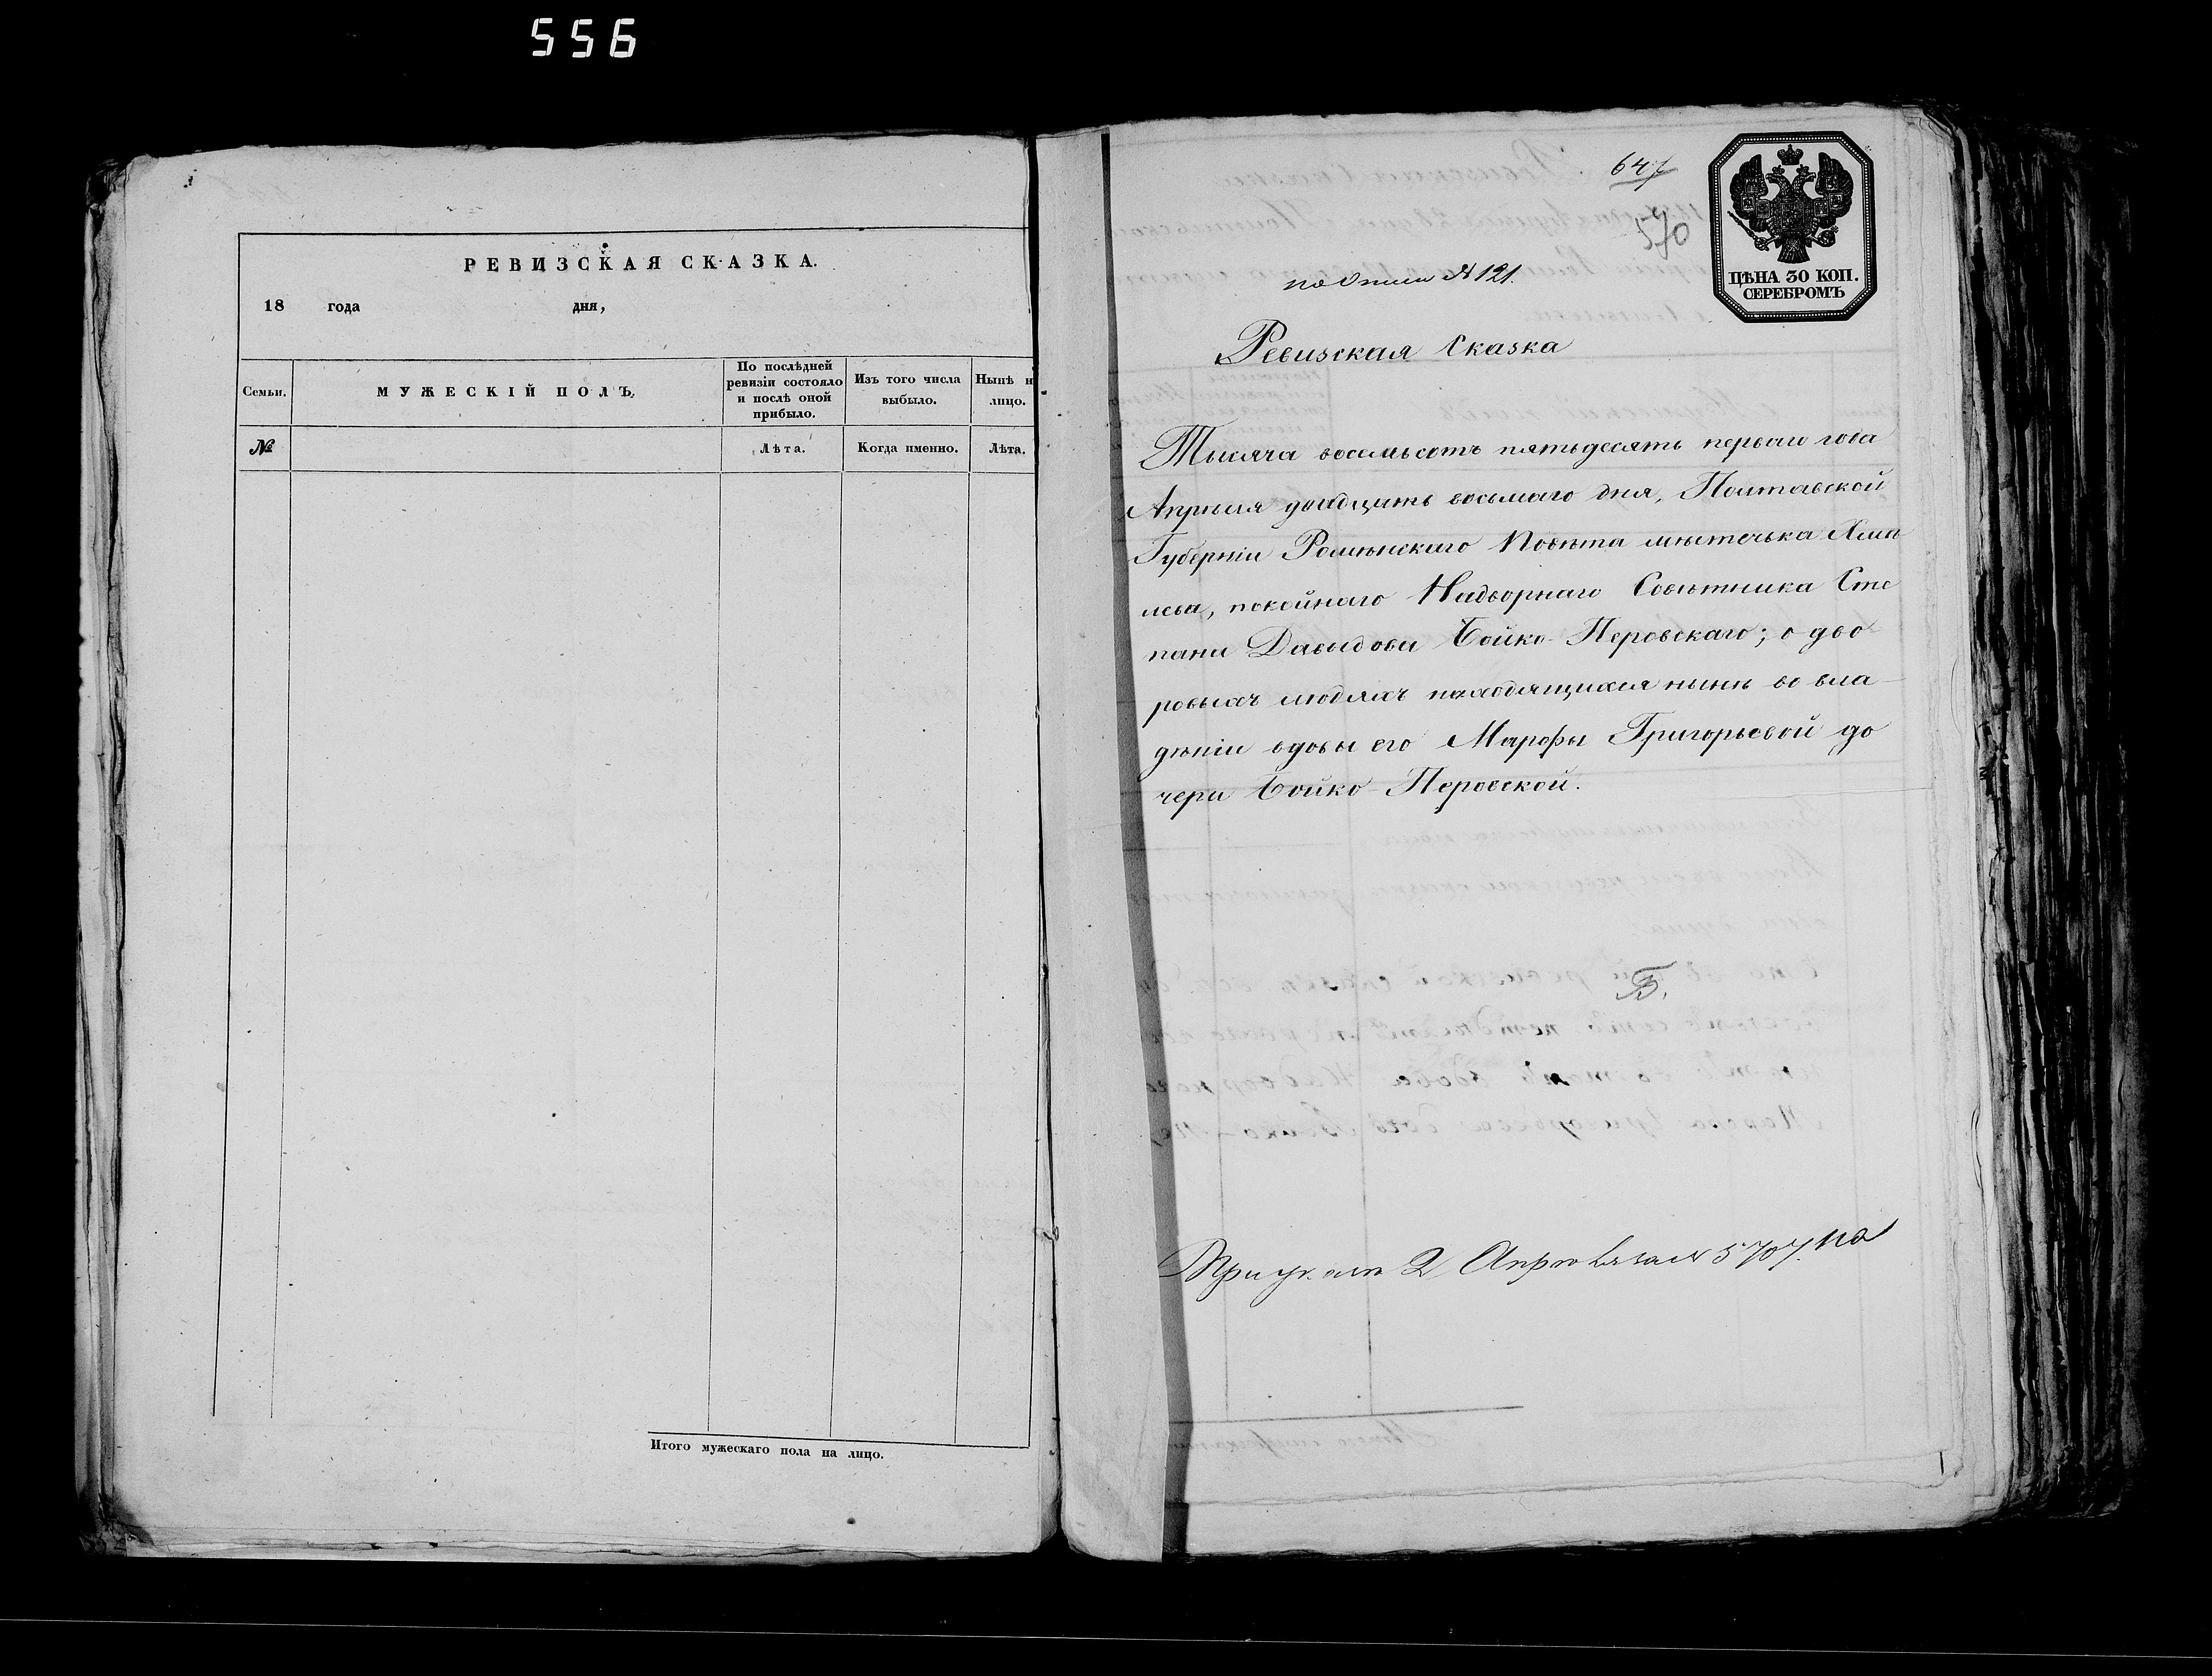 556
РЕВИЗСКАЯ СКАЗКА.
18 года дня,
Семьи.
МУЖЕСКІЙ ПОЛЪ,
По послѣдней ревизіи состояло и послѣ оной прибыло.
Изъ того числа выбыло.
Нынѣ н лицо.
№
Лѣта.
Когда именно.
Лѣта.
Итого мужескаго пола на лицо.
647
570
ЦѢНА 30 КОП.
СЕРЕБРОМЪ
по описи № 121.
Ревизская Сказка
Тысяча восемьсотъ пятьдесятъ перваго года
Апрѣля двадцать восьмаго дня, Полтавской
Губерніи Роменскаго Повѣта мѣстечка Хмѣ
лева, покойнаго Надворнаго Совѣтника Сте
пана Давыдова Бойко-Перовскаго; о дво
ровыхъ людяхъ находящихся нынѣ во вла
дѣніи вдовы его Марфы Григорьевой до
чери Бойко-Перовской.
Б.
2 5707.